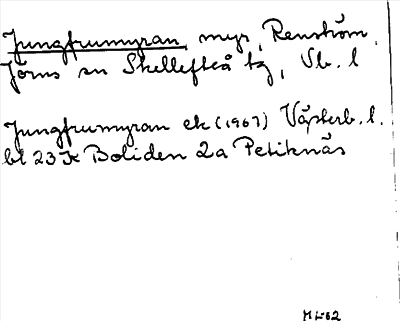 Jungfrumyran, myr, Renström,
Jörns sn Skellefteå tg, Vb. l
Jungfrumyran ek (1967) Västerb. l.
bl 23 K Boliden 2a Petiknäs